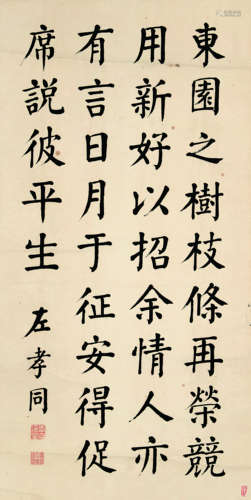 東園之樹枝條再榮競
用新好以招余情人亦
有言日月于征安得促
席説彼平生
左孝同